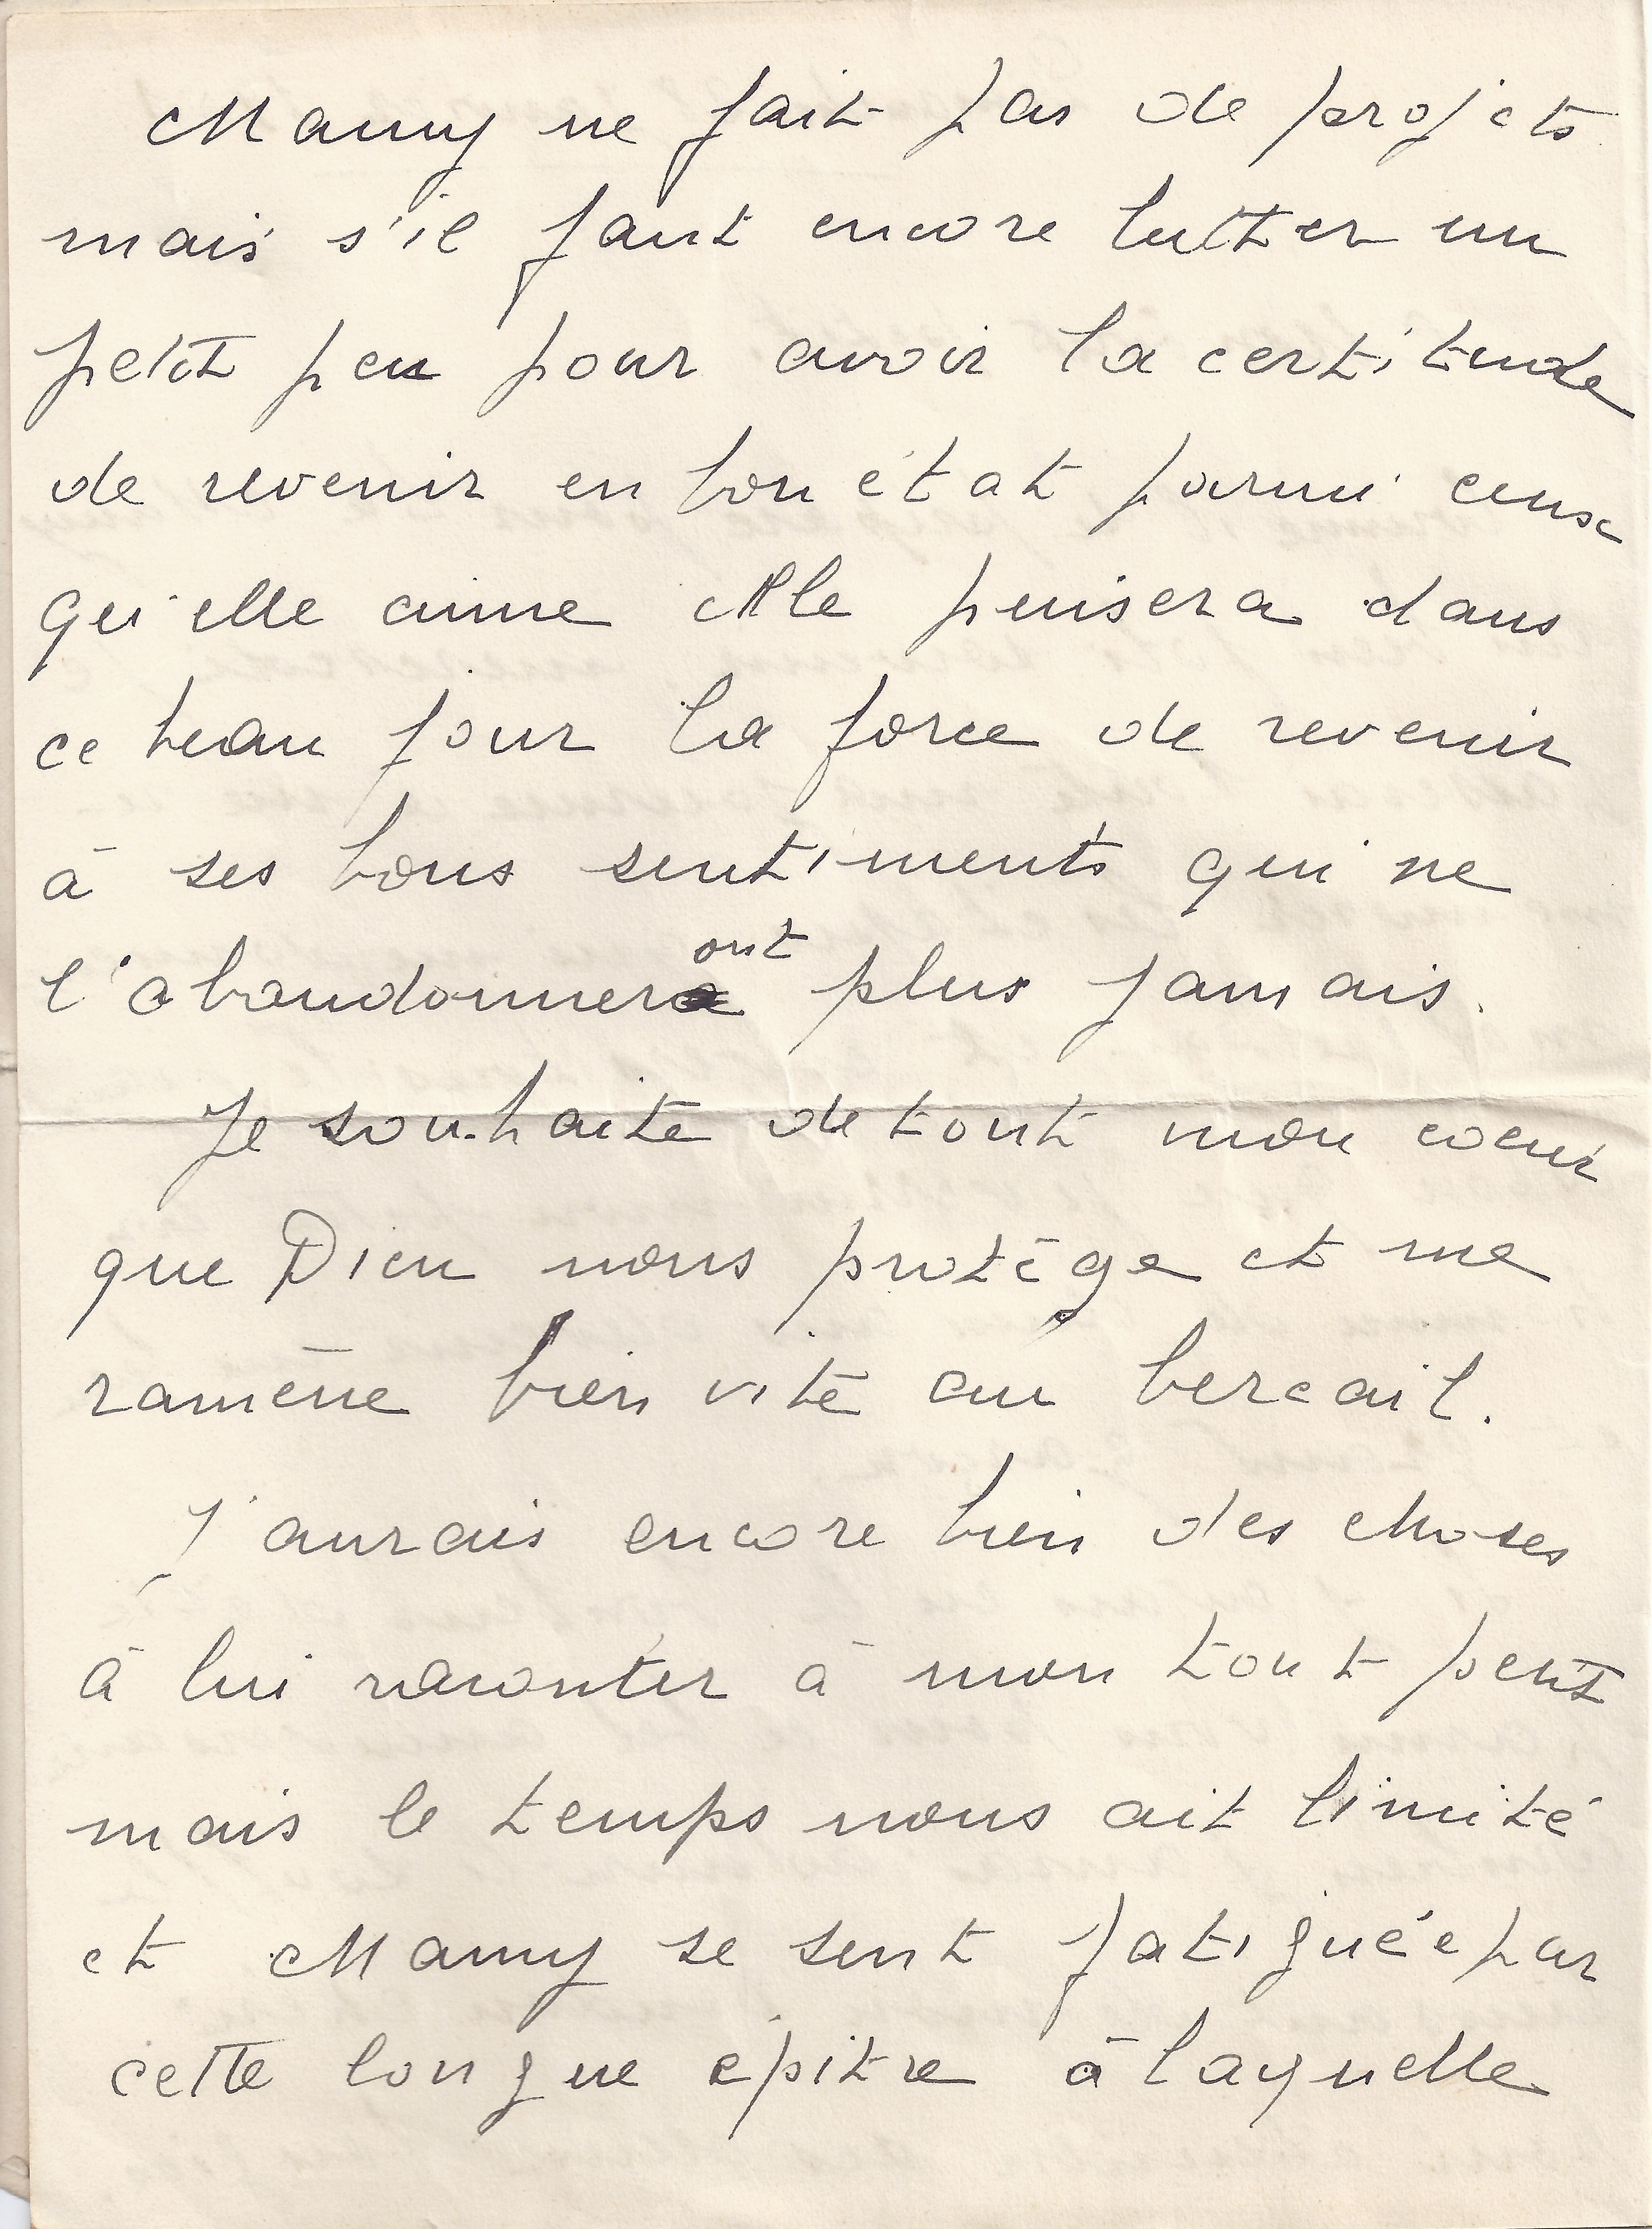 Mamy ne fait pas de projets
mais s'il faut encore lutter un
petit peu pour avoir la certitude
de revenir en bon état parmi ceux
qu'elle aime elle puisera dans
ce beau jour la force de revenir
à ses bons sentiments qui ne
l'abandonneront plus jamais.
Je souhaite de tout mon coeur
que Dieu nous protège et me
ramène bien vite au bercail.
J'aurais encore bien des choses
à lui raconter à mon tout petit
mais le temps nous ait limité
et Mamy se sent fatiguée par
cette longue épitre à laquelle